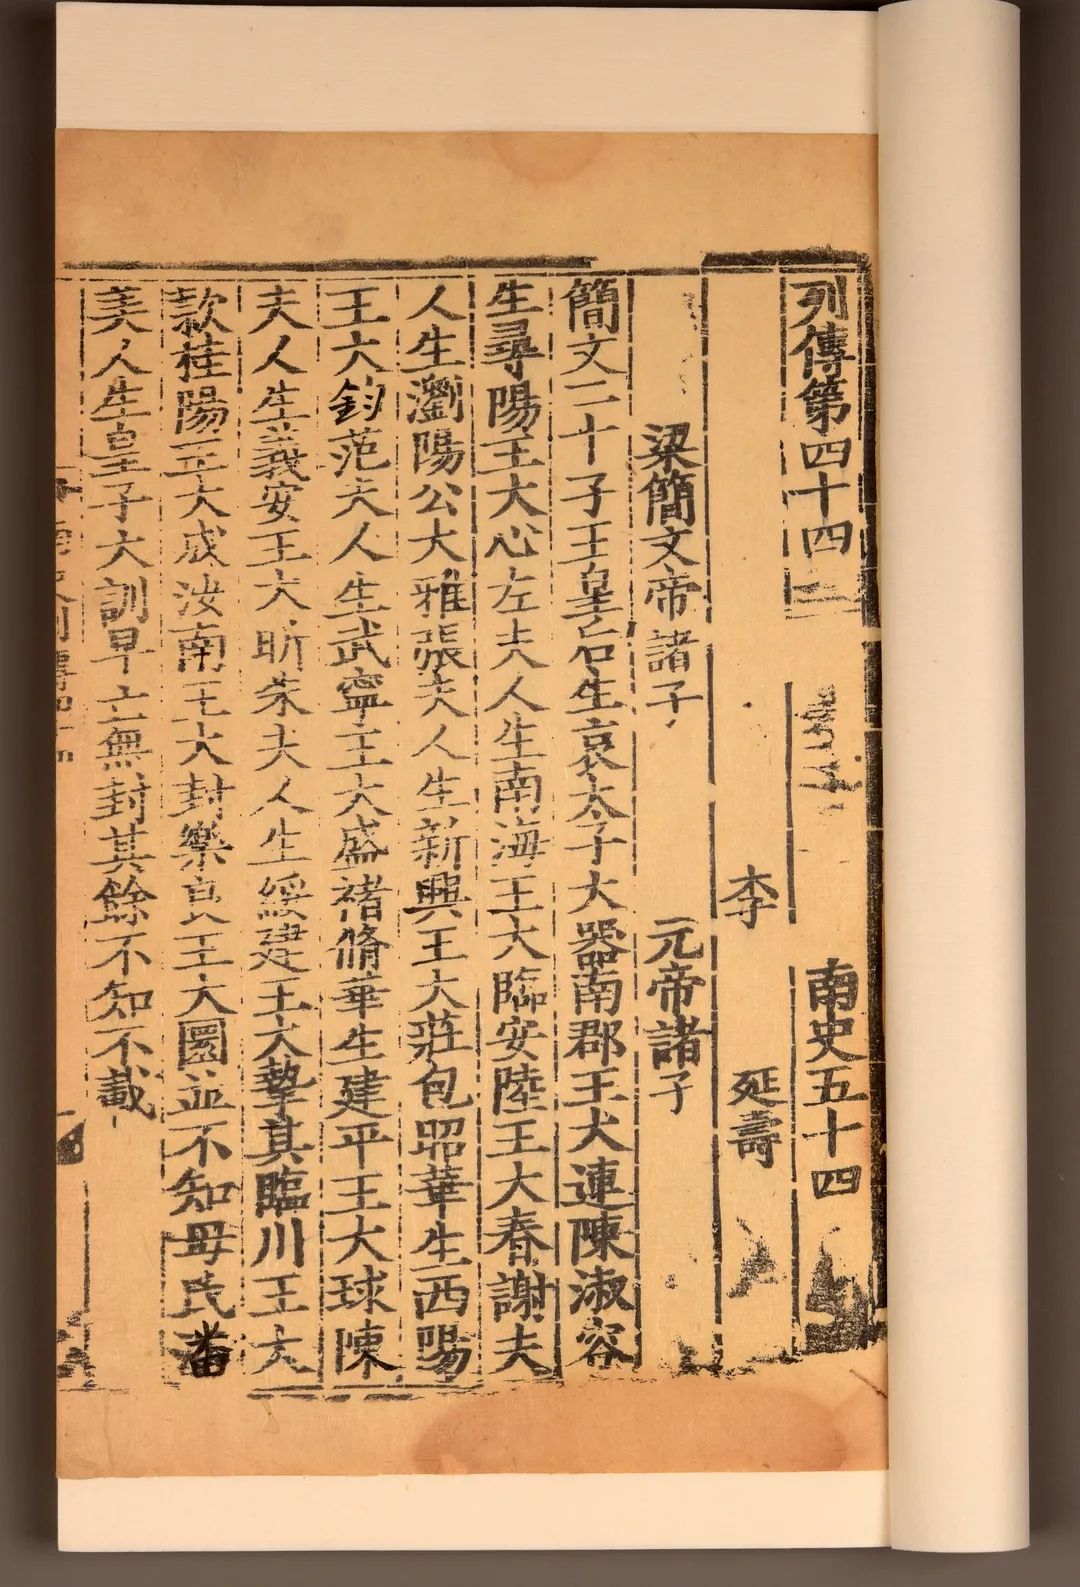 列傳第四十四 南史五十四
李 延壽
梁簡文帝諸子 元帝諸子
簡文二十子王皇后生哀太子大器南郡王大連陳淑容
生尋陽王大心左夫人生南海王大臨安陸王大春謝夫
人生瀏陽公大雅張夫人生新興王大莊包昭華生西陽
王大鈞范夫人生武寧王大盛褚脩華生建平王大球陳
夫人生義安王大昕朱夫人生綏建王大摯其臨川王大
款桂陽王大成汝南王大封樂良王大圜並不知母氏潘
美人生皇子大訓早亡無封其餘不知不載